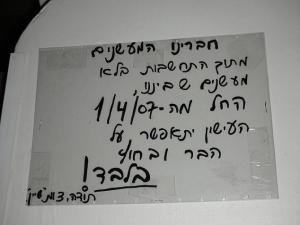 חברינו המעשנים
מתוך התחשבות בלא
מעשנים שבינינו,
החל מה-1/4/07
העישון יתאפשר על
הבר ובחוץ
בלבד!
תודה, צוות "